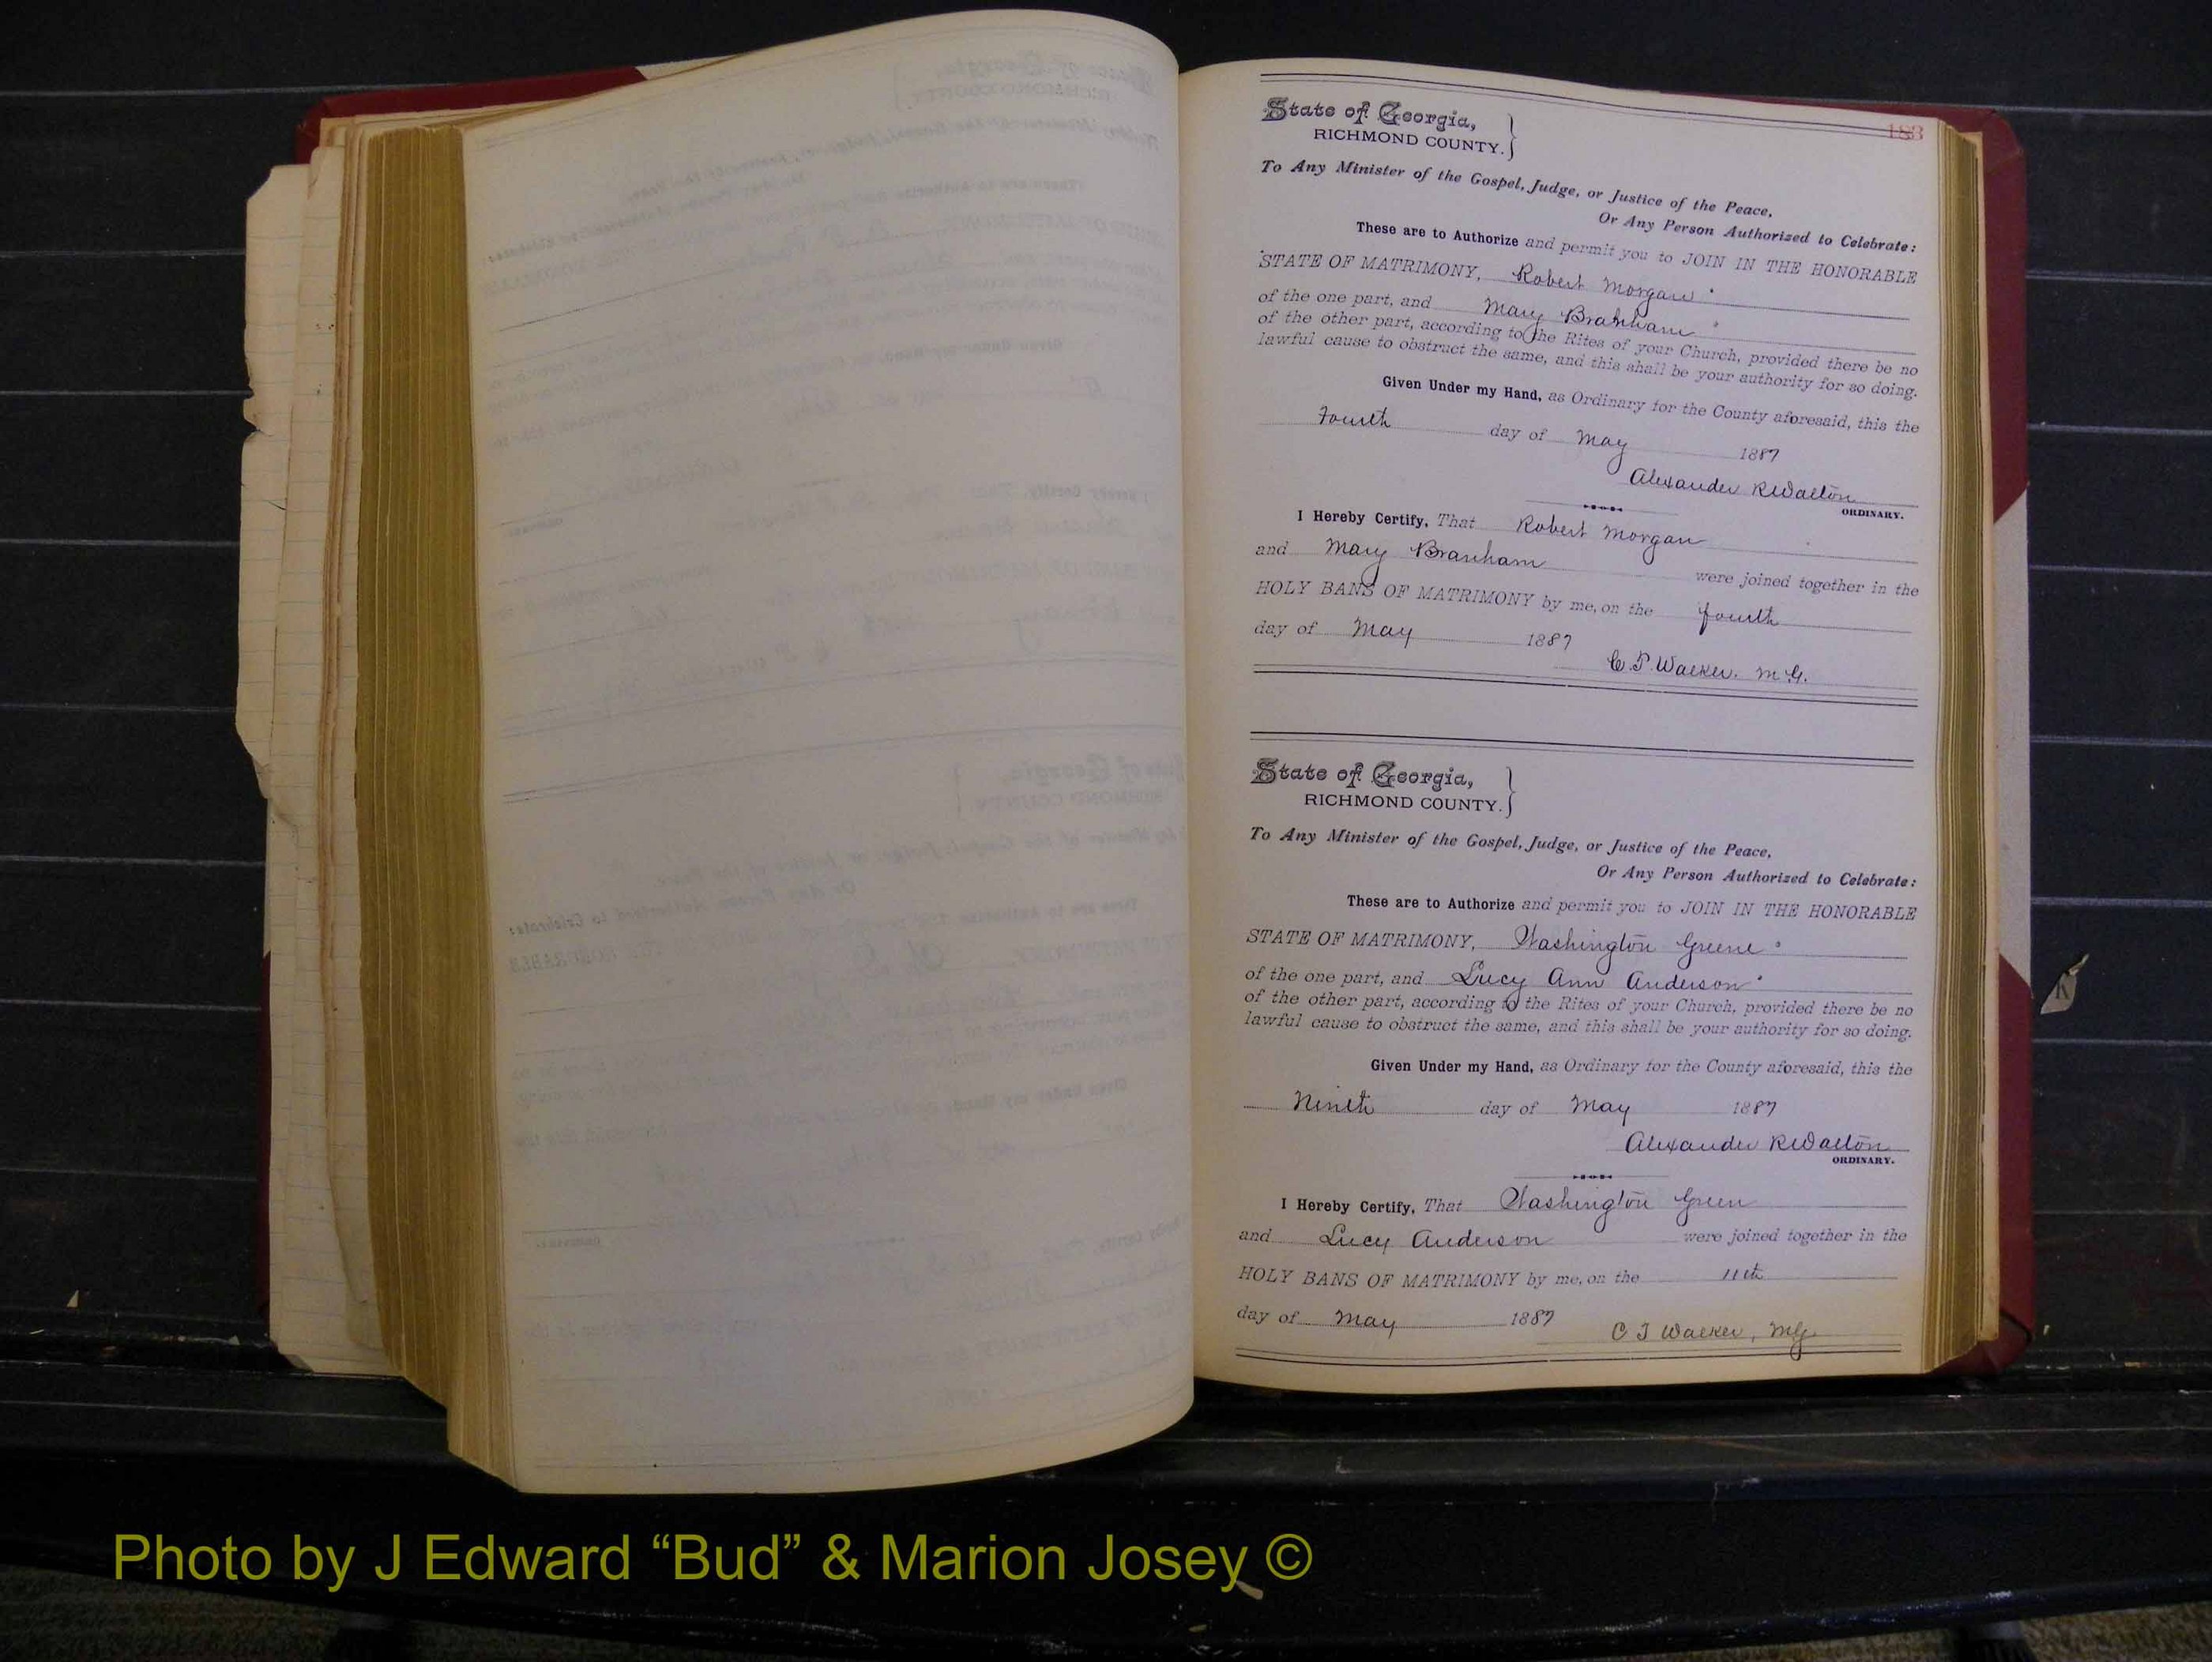 183
State of Georgia,
RICHMOND COUNTY.
To Any Minister of the Gospel, Judge, or Justice of the Peace,
Or Any Person Authorized to Celebrate:
These are to Authorize and permit you to JOIN IN THE HONORABLE
STATE OF MATRIMONY, Robert Morgan
of the one part, and Mary Branham
of the other part, according to the Rites of your Church, provided there be no
lawful cause to obstruct the same, and this shall be your authority for so doing.
Given Under my Hand, as Ordinary for the County aforesaid, this the
Fourth day of May 1887
Alexander R Walton
ORDINARY.
I Hereby Certify, That Robert Morgan
and Mary Branham were joined together in the
HOLY BANS OF MATRIMONY by me, on the fourth
day of May 1887
C. T. Walker. M.G.
State of Georgia,
RICHMOND COUNTY.
To Any Minister of the Gospel, Judge, or Justice of the Peace,
Or Any Person Authorized to Celebrate:
These are to Authorize and permit you to JOIN IN THE HONORABLE
STATE OF MATRIMONY, Washington Greene
of the one part, and Lucy Ann Anderson
of the other part, according to the Rites of your Church, provided there be no
lawful cause to obstruct the same, and this shall be your authority for so doing.
Given Under my Hand, as Ordinary for the County aforesaid, this the
Ninth day of May 1887
Alexander R Walton
ORDINARY.
I Hereby Certify, That Washington Green
and Lucy Anderson were joined together in the
HOLY BANS OF MATRIMONY by me, on the 11th
day of May 1887
C T Walker, MG.
K
Photo by J Edward “Bud” & Marion Josey ©